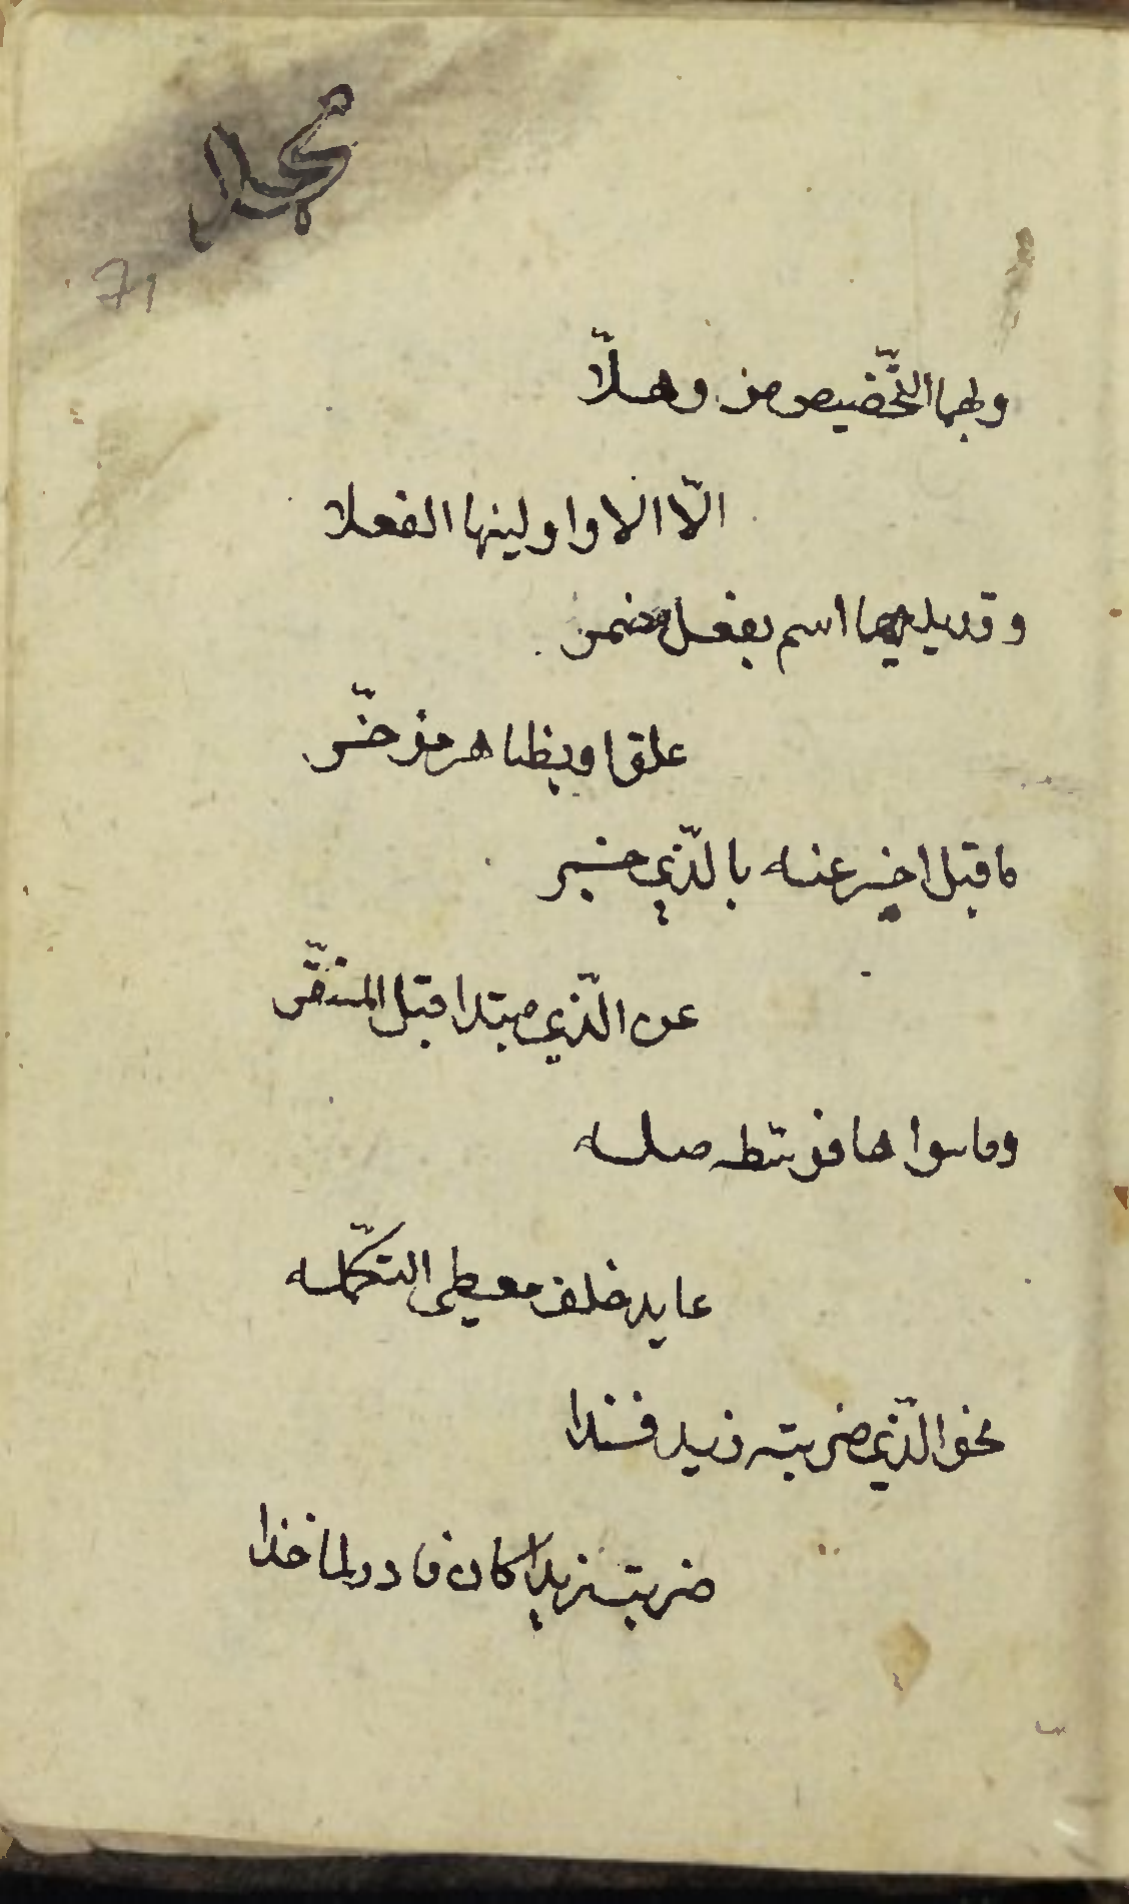 محال
71
وبهما التّحّضيص مز وهلّا
الّا الا واولينها الفعلا
وقد يليها اسم بفعل مضمر
علق او بظاهر مؤخّر
ما قيل اخبر عنه بالّذي خبر
عن الّذي مبتدا قبل استقّر
وما سواها فوسّطه صله
عايد خلف معطي التكّمله
نحو الّذي ضربته زيد فذا
ضربت زيدا كان فادر لماخذا